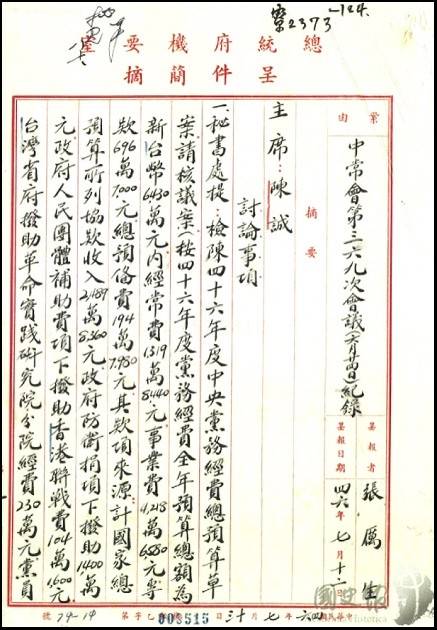 案2373
-124.
總統府機要室
呈件簡摘
案由
中常會第三六九次會議紀錄
呈報者
張厲生
呈報日期
四六年七月十二日
摘要
主席：陳誠
討論事項
一、秘書處提：檢陳四十六年度中央黨務經費總預算草
案請核議案(按四十六年度黨務經費全年預算總額為
新台幣6430萬元內經常費1319萬8440元事業費4,218萬6580元專
款696萬7000元總預備費194萬7,980元其款項來源：計國家總
預算所列協款收入2,489萬8360元政府防衛捐項下撥助1400萬
元政府人民團體補助費項下撥助香港聯戰費104萬1,600元
台灣省府撥助革命實踐研究院分院經費230萬元黨員
003515
國史館